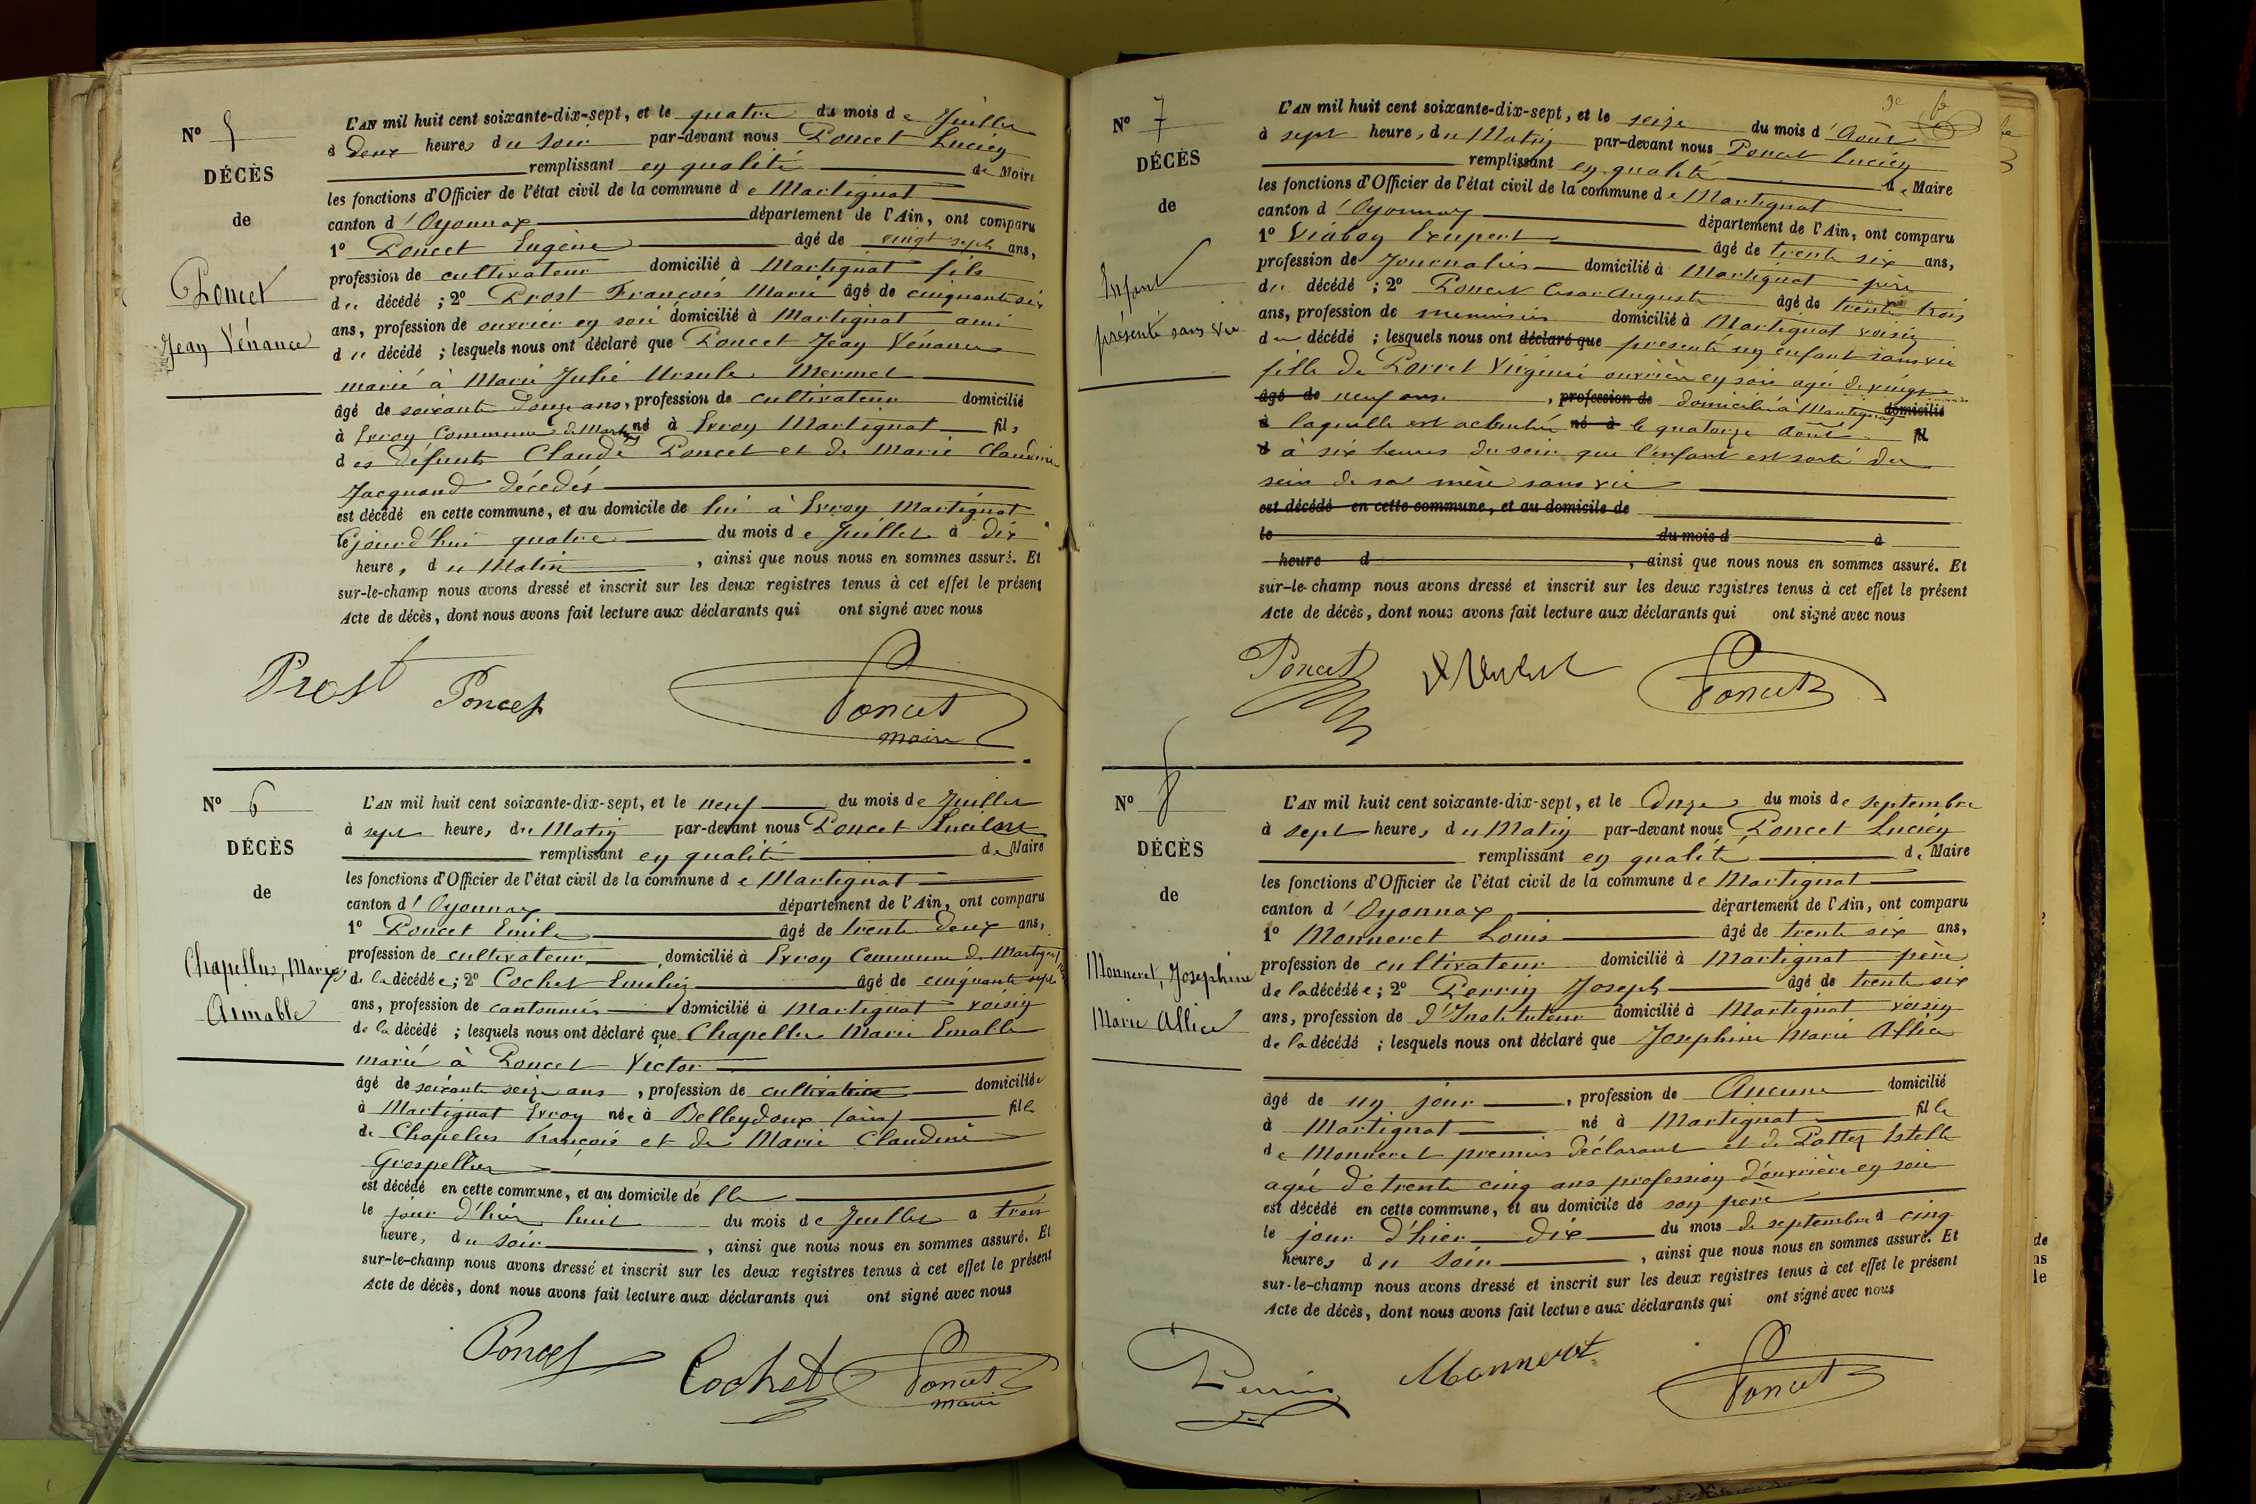 N° 5
DÉCÈS
de
Poncet
Jean Vénance
L'AN mil huit cent soixante-dix-sept, et le quatre du mois de Juillet
à deux heures du soir par-devant nous Poncet Lucien
remplissant en qualité de Maire
les fonctions d'Officier de l'état civil de la commune de Martignat
canton d'Oyonnax département de l'Ain, ont comparu
1° Poncet Eugène âgé de vingt sept ans,
profession de cultivateur domicilié à Martignat fils
du décédé ; 2° Prost François Marie âgé de cinquante six
ans, profession de ouvrier en soie domicilié à Martignat ami
du décédé ; lesquels nous ont déclaré que Poncet Jean Vénance
marié à Marie Julie Ursule Mermet
âgé de soixante douze ans, profession de cultivateur domicilié
à Evron Commune de Mart né à Evron Martignat fils
des défunts Claude Poncet et de Marie Claudine
Jacquand décédés
est décédé en cette commune, et au domicile de lui à Evron Martignat
le jourd'hui quatre du mois de Juillet à dix
heures du Matin, ainsi que nous nous en sommes assuré. Et
sur-le-champ nous avons dressé et inscrit sur les deux registres tenus à cet effet le présent
Acte de décès, dont nous avons fait lecture aux déclarants qui ont signé avec nous
Prost Poncet Poncet
maire
N° 6
DÉCÈS
de
Chapellu, Marie
Aimable
L'AN mil huit cent soixante-dix-sept, et le neuf du mois de Juillet
à sept heures du Matin par-devant nous Poncet
remplissant en qualité de Maire
les fonctions d'Officier de l'état civil de la commune de Martignat
canton d'Oyonnax département de l'Ain, ont comparu
1° Poncet Emile âgé de trente deux ans,
profession de cultivateur domicilié à Evron Commune de Martignat
de la décédée ; 2° Cochet Emelin âgé de cinquante sept
ans, profession de cantonnier domicilié à Martignat voisin
de la décédé ; lesquels nous ont déclaré que Chapellu Marie Emable
marié à Poncet Victor
âgé de soixante seize ans, profession de cultivatrice domiciliée
à Martignat Evron née à Belleydoux (ain) fille
de Chapelus François et de Marie Claudine
Grospellier
est décédé en cette commune, et au domicile de elle
le jour d'hier huit du mois de Juillet à trois
heures du soir, ainsi que nous nous en sommes assuré. Et
sur-le-champ nous avons dressé et inscrit sur les deux registres tenus à cet effet le présent
Acte de décès, dont nous avons fait lecture aux déclarants qui ont signé avec nous
Poncet Cochet Poncet
maire
N° 7
DÉCÈS
de
Enfant
présenté sans vie
L'AN mil huit cent soixante-dix-sept, et le seize du mois d'Août
à sept heures du Matin par-devant nous Poncet Lucien
remplissant en qualité de Maire
les fonctions d'Officier de l'état civil de la commune de Martignat
canton d'Oyonnax département de l'Ain, ont comparu
1° Exupert âgé de trente six ans,
profession de Journalier domicilié à Martignat père
du décédé ; 2° Poncet Cesar Auguste âgé de trente trois
ans, profession de menuisier domicilié à Martignat voisin
du décédé ; lesquels nous ont déclaré que présenté un enfant sans vie
fille de Porret Virginie ouvrière en soie agée de vingt
âgé de neuf ans, profession de domiciliée à Martignat domicilié
à laquelle est acouchée né à le quatorze Août fil
d à six heures du soir que l'enfant est sorti du
sein de sa mère sans vie
est décédé en cette commune, et au domicile de
le du mois d à
heure d, ainsi que nous nous en sommes assuré. Et
sur-le-champ nous avons dressé et inscrit sur les deux registres tenus à cet effet le présent
Acte de décès, dont nous avons fait lecture aux déclarants qui ont signé avec nous
Poncet Poncet
N° 8
DÉCÈS
de
Monneret, Josephine
Marie Allice
L'AN mil huit cent soixante-dix-sept, et le Onze du mois de septembre
à sept heures du Matin par-devant nous Poncet Lucien
remplissant en qualité de Maire
les fonctions d'Officier de l'état civil de la commune de Martignat
canton d'Oyonnax département de l'Ain, ont comparu
1° Monneret Louis âgé de trente six ans,
profession de cultivateur domicilié à Martignat père
de la décédée ; 2° Perrin Joseph âgé de trente six
ans, profession de d'Instituteur domicilié à Martignat voisin
de la décédé ; lesquels nous ont déclaré que Josephine Marie Allice
âgé de un jour, profession de Aucune domicilié
à Martignat né à Martignat fille
de Monneret premier déclarant et de Estelle
agée de trente cinq ans profession d'ouvrière en soie
est décédé en cette commune, et au domicile de son père
le jour d'hier dix du mois de septembre à cinq
heures du soir, ainsi que nous nous en sommes assuré. Et
sur-le-champ nous avons dressé et inscrit sur les deux registres tenus à cet effet le présent
Acte de décès, dont nous avons fait lecture aux déclarants qui ont signé avec nous
Perrin Monneret Poncet